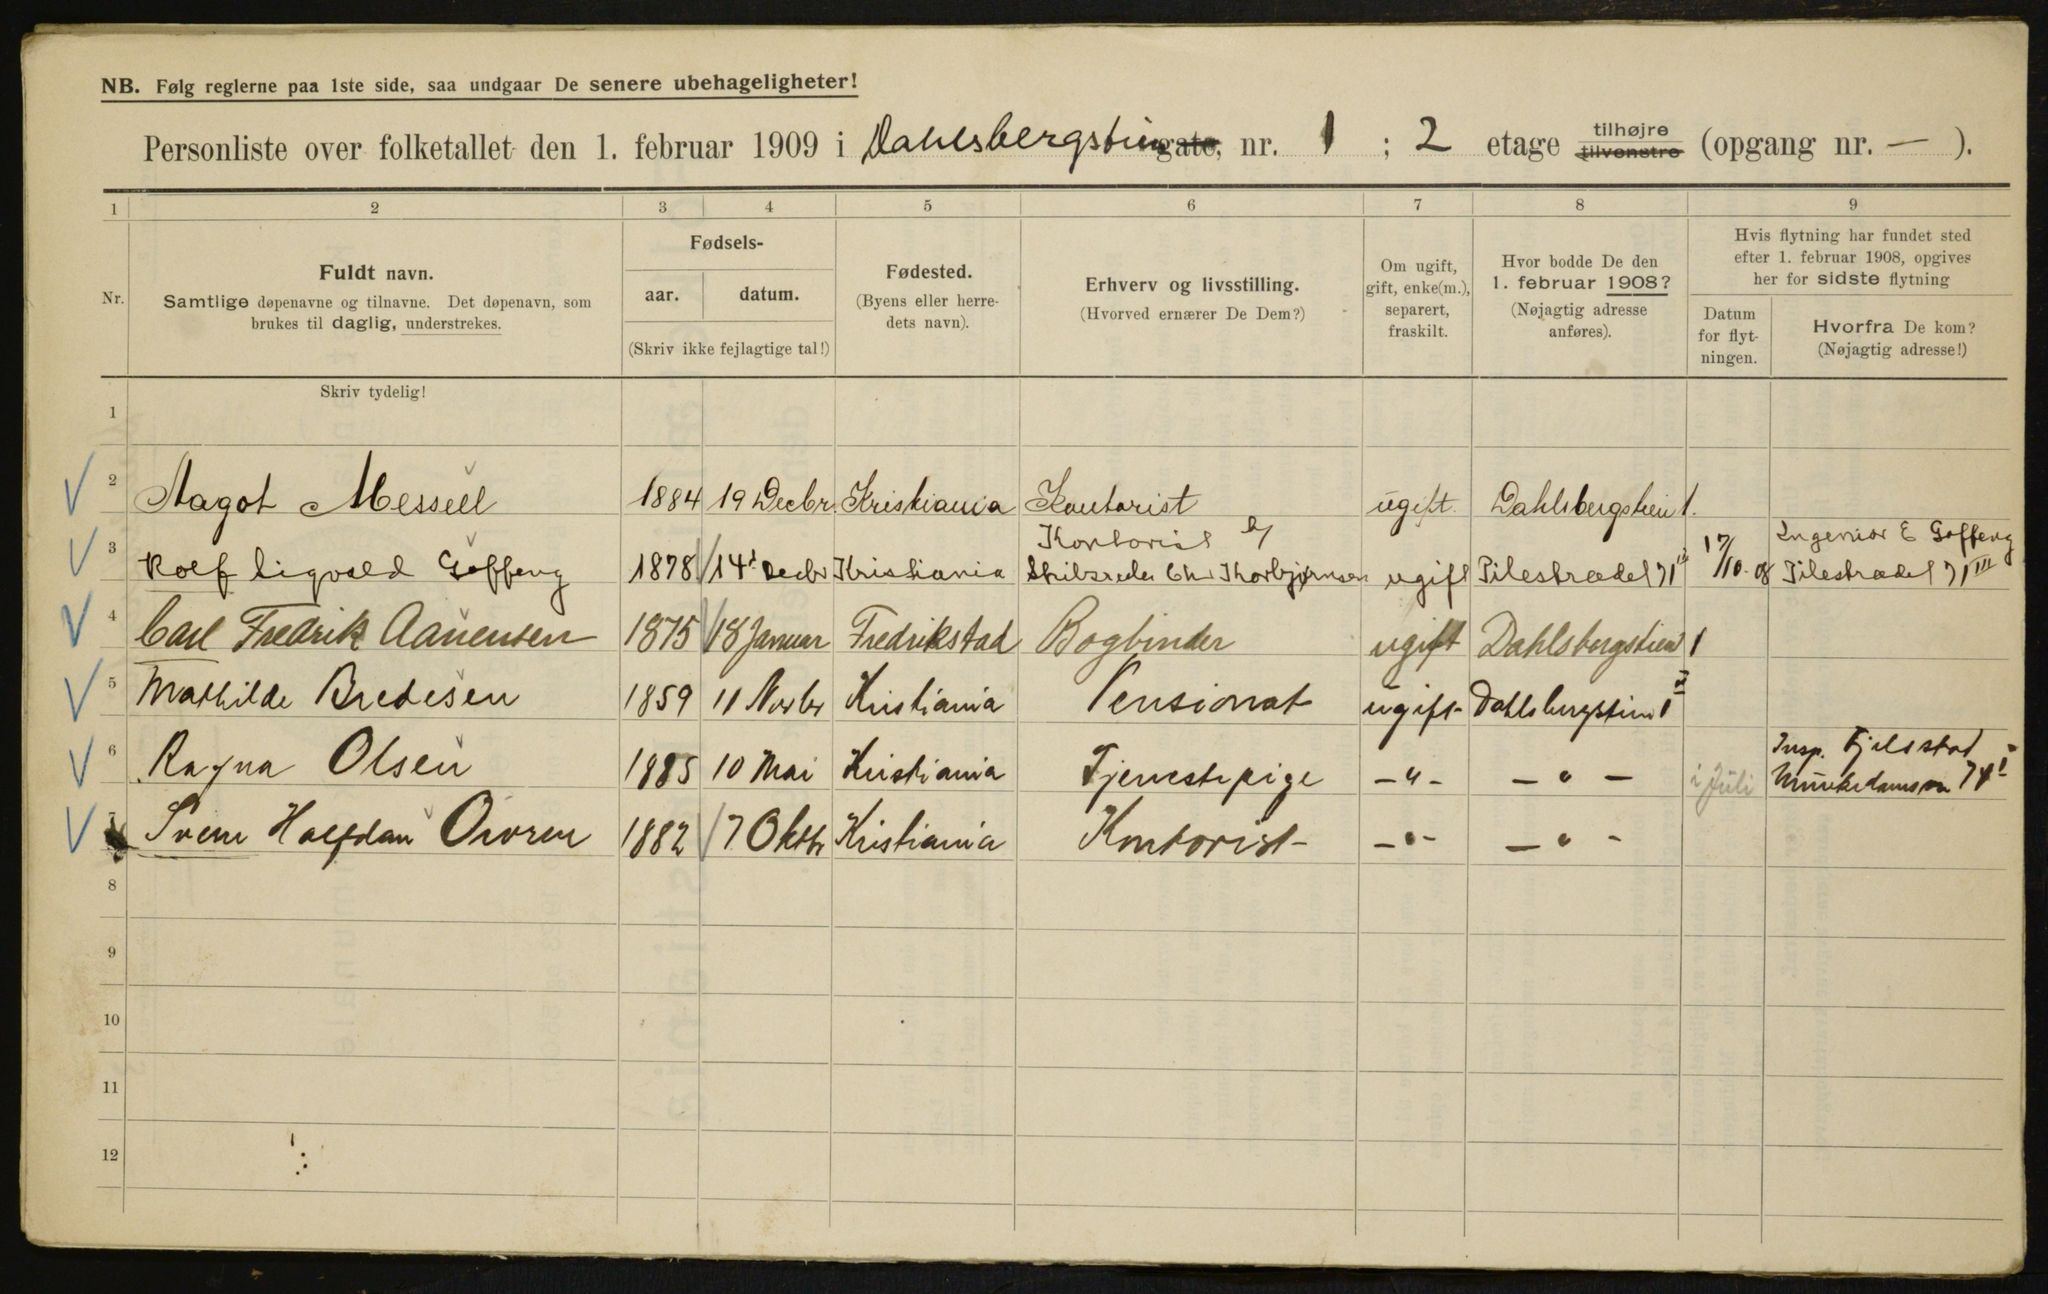 NB. Følg reglerne paa 1ste side, saa undgaar De senere ubehageligheter!
Personliste over folketallet den 1. februar 1909 i Dahlsbergstien gate, nr. 1 ; 2 etage tilhøjre tilvenstre (opgang nr. — ).
1 2 3 4 5 6 7 8 9
Nr.
Fuldt navn.
Samtlige døpenavne og tilnavne. Det døpenavn, som
brukes til daglig, understrekes.
Fødsels-
aar. datum.
(Skriv ikke fejlagtige tal!)
Fødested.
(Byens eller herre-
dets navn).
Erhverv og livsstilling.
(Hvorved ernærer De Dem?)
Om ugift,
gift, enke(m.),
separert,
fraskilt.
Hvor bodde De den
1. februar 1908?
(Nøjagtig adresse
anføres).
Hvis flytning har fundet sted
efter 1. februar 1908, opgives
her for sidste flytning
Datum
for flyt-
ningen.
Hvorfra De kom?
(Nøjagtig adresse!)
Skriv tydelig!
1
2 Aagot Messell 1884 19 Decbr. Kristiania Kontorist ugift. Dahlsbergstien 1.
Kontorist Ingeniør E Goffeng
3 Rolf Sigvald Goffeng 1878 14 Decbr Kristiania Skibsreder Chr Thorbjørnsen ugift Pilestrædet 71 17/10-08 Pilestrædet 71 III
4 Carl Fredrik Aanensen 1875 18 Januar Fredrikstad Bogbinder ugift Dahlsbergstien 1
5 Mathilde Bredesen 1859 11 Novbr Kristiania Pensionat ugift Dahlsbergstien 1
Insp. Fjelstad
6 Ragna Olsen 1885 10 Mai Kristiania Tjenestepige —"— —"— i Juli Munkedamsvn 74 I
7 Svenn Halfdan 1882 7 Oktbr Kristiania Kontorist —"— —"—
8
9
10
11
12